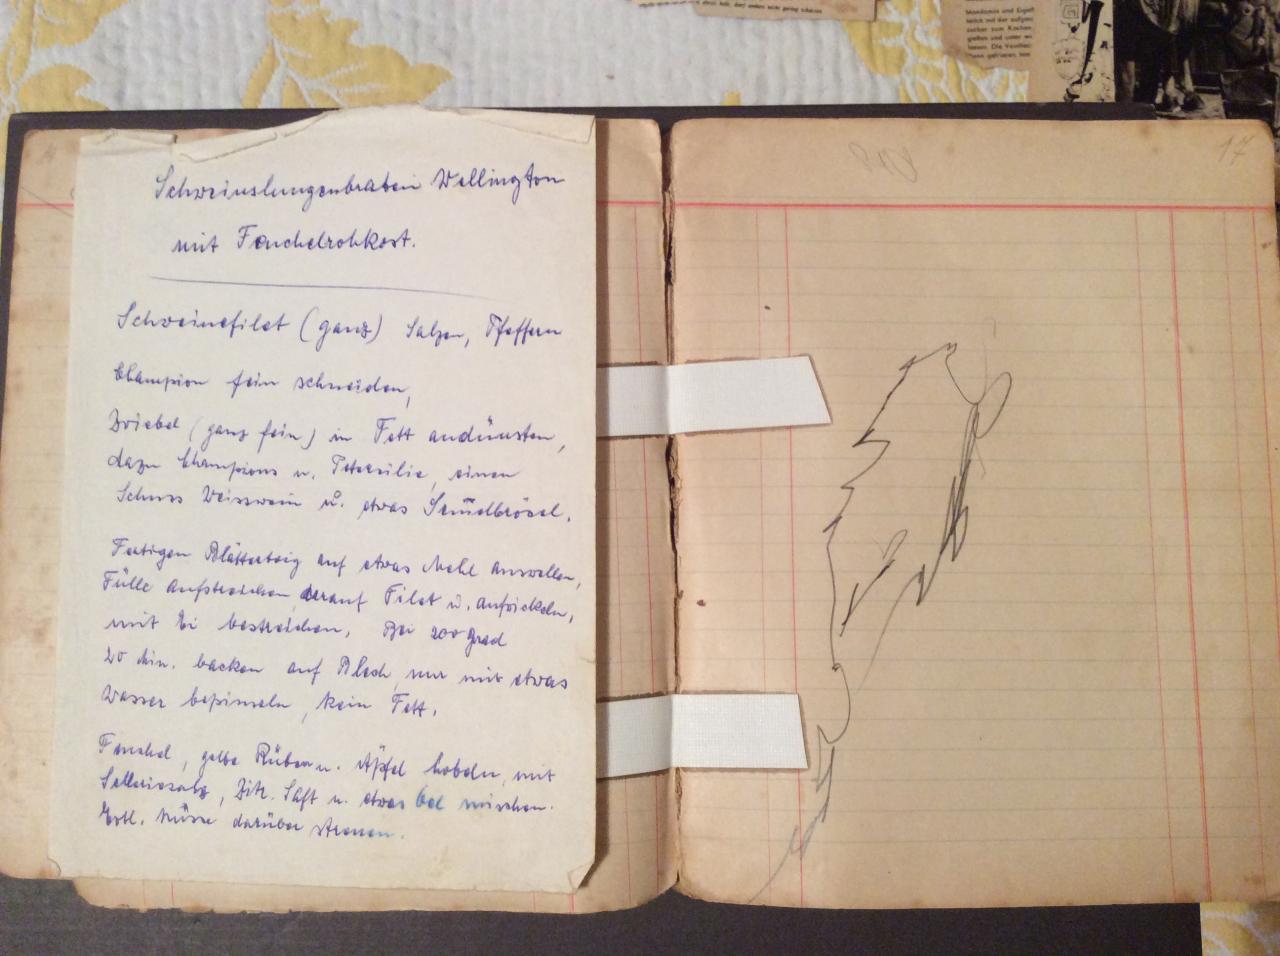 Schweinslungenbraten Wellington
mit Fenchelrohkost.
Schweinefilet (ganz) Salzen, Pfeffern
Champion fein schneiden,
Zwiebel (ganz fein) in Fett andünsten,
dazu Champions u. Petersilie, einen
Schuss Weisswein u. etwas Sem̅elbrösel.
Fertigen Blätterteig auf etwas Mehl auswellen,
Fülle aufstreichen, darauf Filet u. aufwickeln,
mit Ei bestreichen. Bei 200 grad
20 Min. backen auf Blech, nur mit etwas
Wasser bepinseln, kein Fett.
Fenchel, gelbe Rüben u. Äpfel hobeln, mit
Selleriesalz, Zitr. Saft u. etwas öel mischen.
Evtl. Nüsse darüber streuen.
17
Mandonis und Eigelb